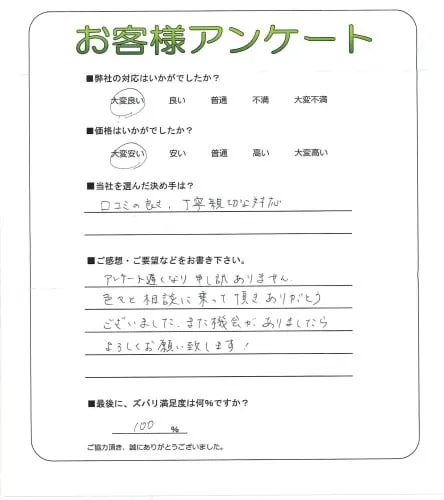 お客様アンケート
■弊社の対応はいかがでしたか?
大変良い 良い 普通 不満 大変不満
■価格はいかがでしたか?
大変安い 安い 普通 高い 大変高い
■当社を選んだ決め手は?
口コミの良さ、丁寧親切な対応
■ご感想・ご要望などをお書き下さい。
アンケート遅くなり申し訳ありません。
色々と相談に乗って頂きありがとう
ございました。また機会がありましたら
よろしくお願い致します!
■最後に、ズバリ満足度は何%ですか?
100 %
ご協力頂き、誠にありがとうございました。